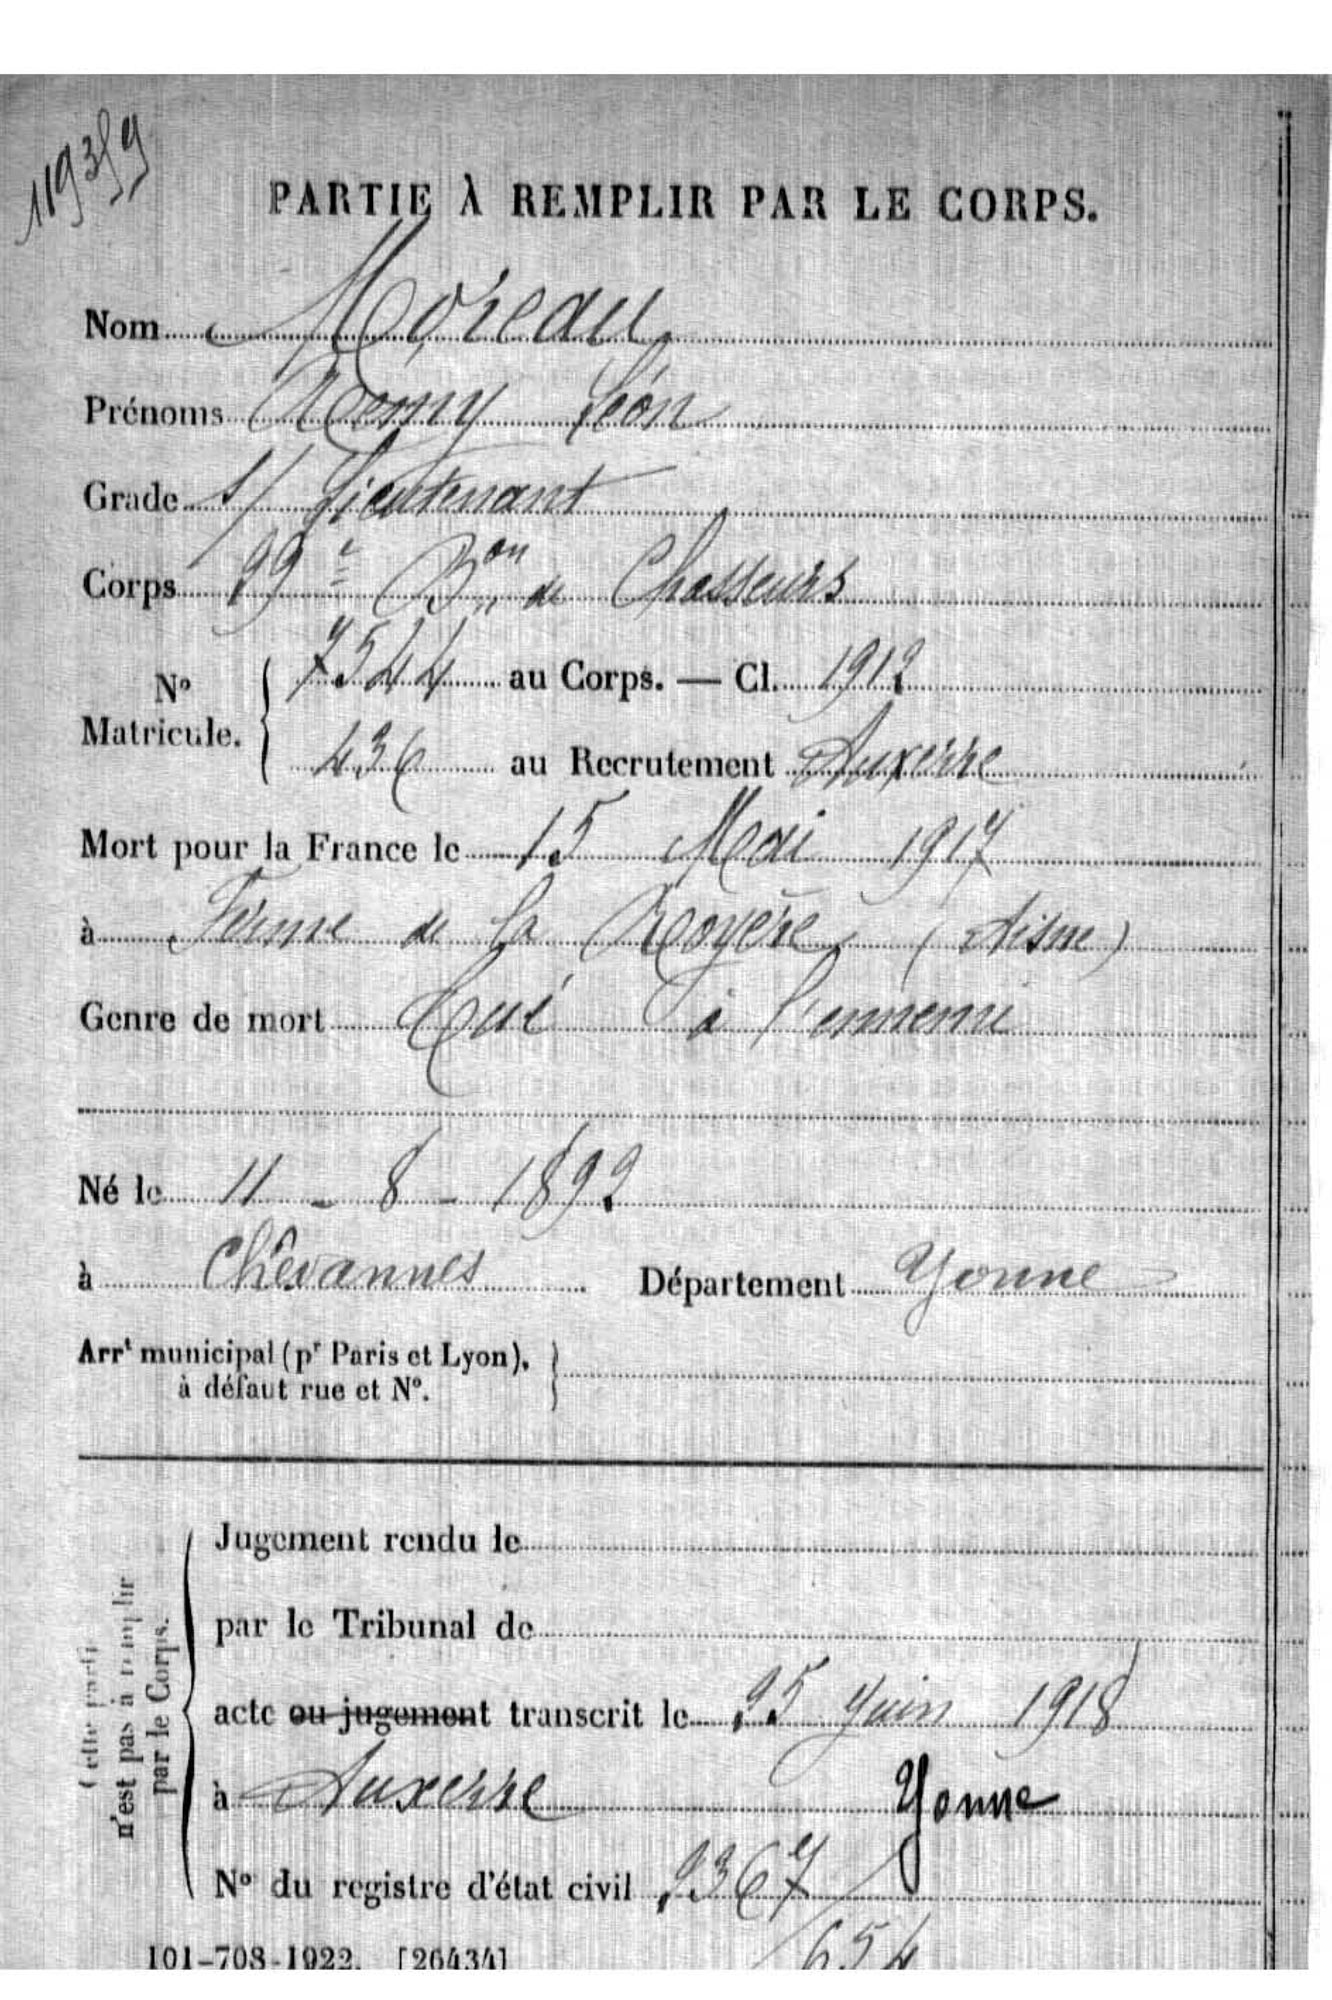 119359
PARTIE À REMPLIR PAR LE CORPS.
Nom Moreau
Prénoms Rémy Léon
Grade s/ Lieutenant
Corps 29e Bon de Chasseurs
No Matricule. 7544 au Corps. — Cl. 1912
436 au Recrutement Auxerre
Mort pour la France le 15 Mai 1917
à Ferme de la Royère (Aisne)
Genre de mort Tué à l'ennemi
Né le 11 - 8 - 1892
à Chêvannes Département Yonne
Arrt municipal (pr Paris et Lyon),
à défaut rue et No.
Cette partie
n'est pas à remplir
par le Corps.
Jugement rendu le
par le Tribunal de
acte ou jugement transcrit le 25 Juin 1918
à Auxerre Yonne
No du registre d'état civil 2367
654
101-708-1922. [26434]